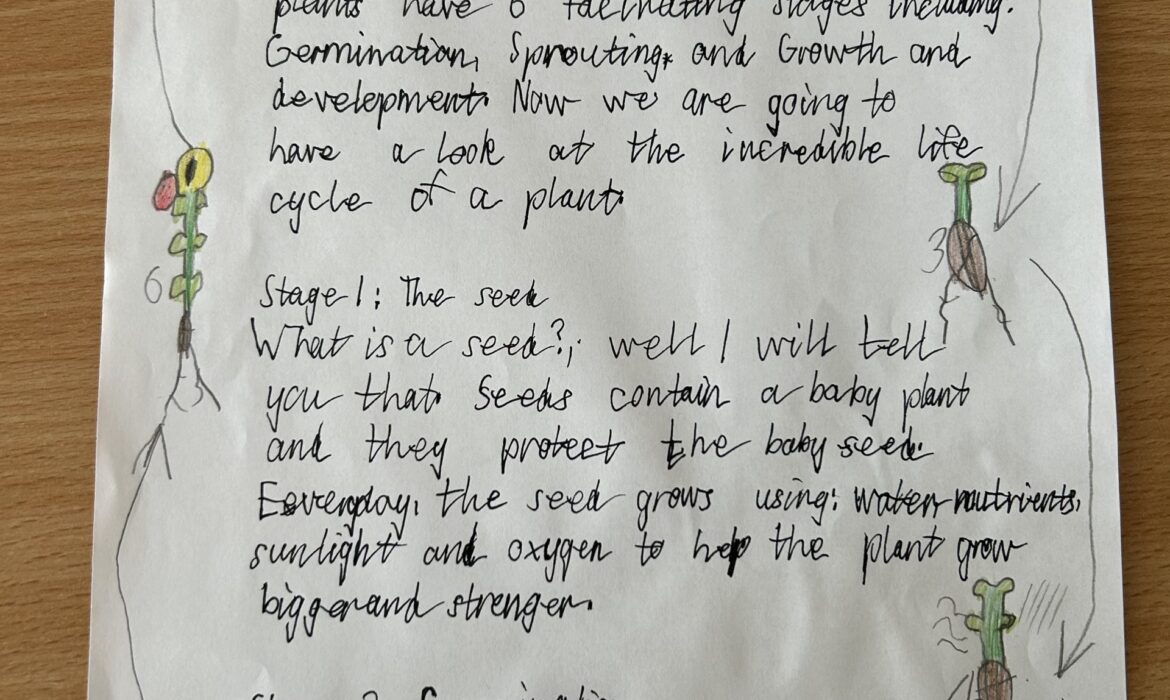 plants have 6 facinating stages including:
Germination, Sprouting, and Growth and
development. Now we are going to
have a look at the incredible life
cycle of a plant.
6
3
Stage 1: The seed
What is a seed?, well I will tell
you that Seeds contain a baby plant
and they protect the baby seed.
Everyday, the seed grows using: water, nutrients,
sunlight and oxygen to help the plant grow
bigger and stronger.